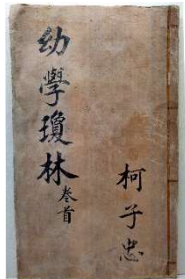 幼學瓊林
叁首
柯子忠